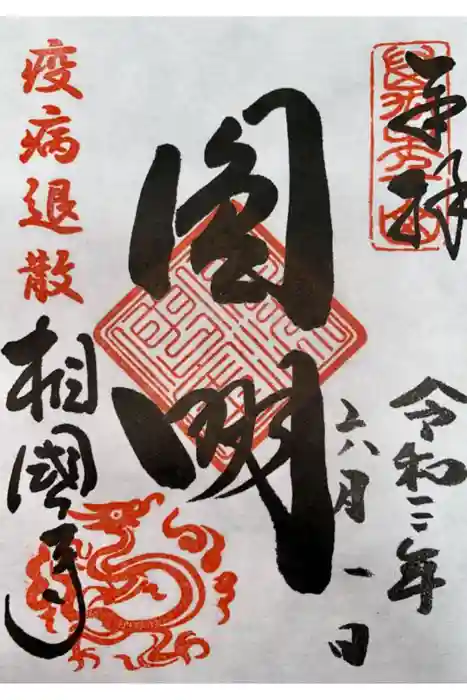 奉拝
令和二年
六月一日
圓明
疫病退散
相國寺